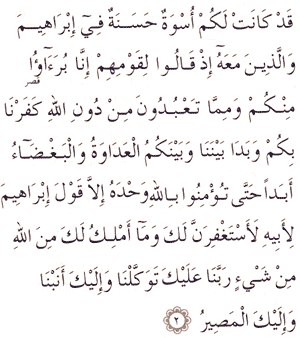 قَدْ كَانَتْ لَكُمْ أُسْوَةٌ حَسَنَةٌ فِيٓ إِبْرَاهِيـمَ
وَالَّذِيـنَ مَعَهُٓ إِذْ قَالُـوا لِقَوْمِهِـمْ إِنَّا بُرَءَٓاؤُا
مِنْـكُـمْ وَمِمَّا تَعْـبُدُونَ مِـنْ دُونِ اللهِ كَفَرْنَا
بِكُمْ وَبَدَا بَيْنَنَا وَبَيْنَكُمُ الْعَدَاوَةُ وَالْبَغْضَٓاءُ
أَبَداً حَتَّى تُـؤْمِنُوا بِـاللهِ وَحْدَهُ إِلاَّ قَوْلَ إِبْرَاهِيمَ
لِأَبِيهِ لَأَسْتَغْفِرَنَّ لَكَ وَمَٓا أَمْلِـكُ لَكَ مِنَ اللهِ
مِنْ شَيْءٍ رَبَّنَا عَلَيْكَ تَوَكَّلْنَا وَإِلَيْكَ أَنَبْنَا
وَإِلَيْكَ الْمَصِيرُ ٢